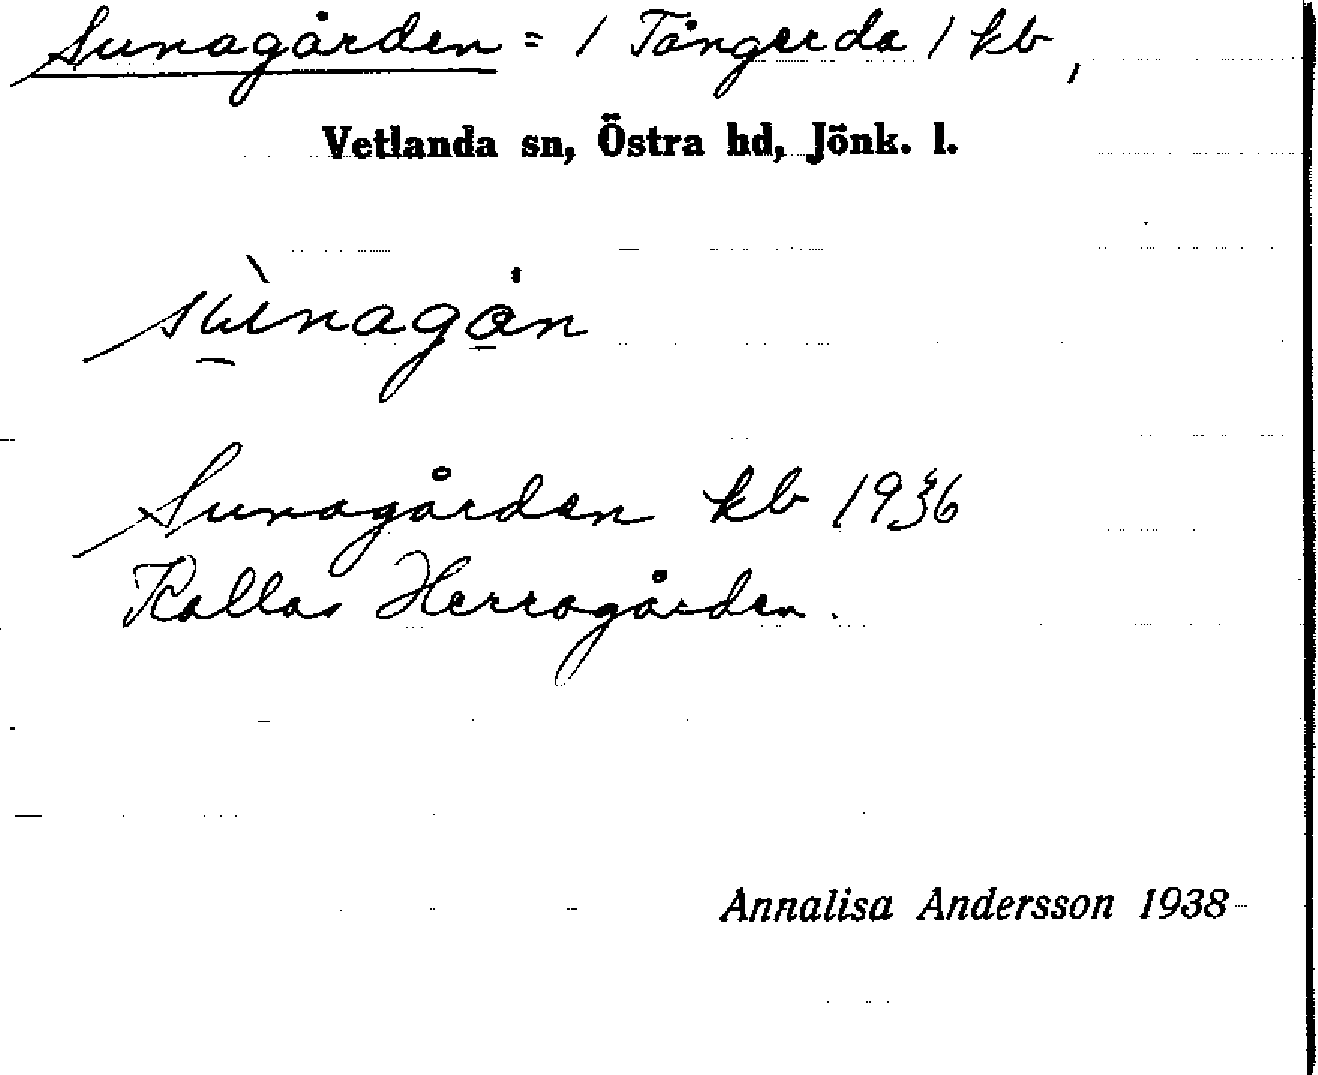 Sunagården = / Tångerda / kb,
Vetlanda sn, Östra hd, Jönk. l.
sùnagån
Sunagården kb 1936
Kallas Herragården.
Annalisa Andersson 1938